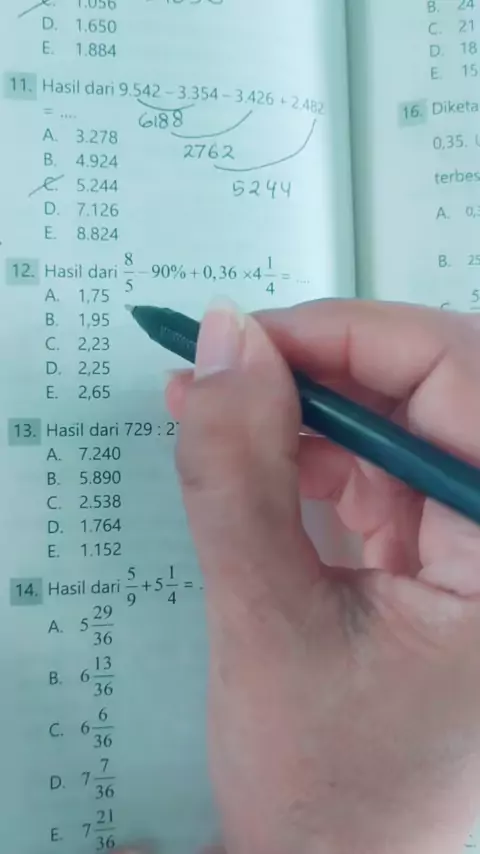 C. 1.056
D. 1.650
E. 1.884
11. Hasil dari 9.542 − 3.354 − 3.426 + 2.482
= ....
6188
2762
5244
A. 3.278
B. 4.924
C. 5.244
D. 7.126
E. 8.824
12. Hasil dari 8/5 − 90% + 0,36 × 4 1/4 = ....
A. 1,75
B. 1,95
C. 2,23
D. 2,25
E. 2,65
13. Hasil dari 729 :
A. 7.240
B. 5.890
C. 2.538
D. 1.764
E. 1.152
14. Hasil dari 5/9 + 5 1/4 =
A. 5 29/36
B. 6 13/36
C. 6 6/36
D. 7 7/36
E. 7 21/36
B. 24
C. 21
D. 18
E. 15
16. Diketa
0,35.
terbes
A. 0,
B. 25